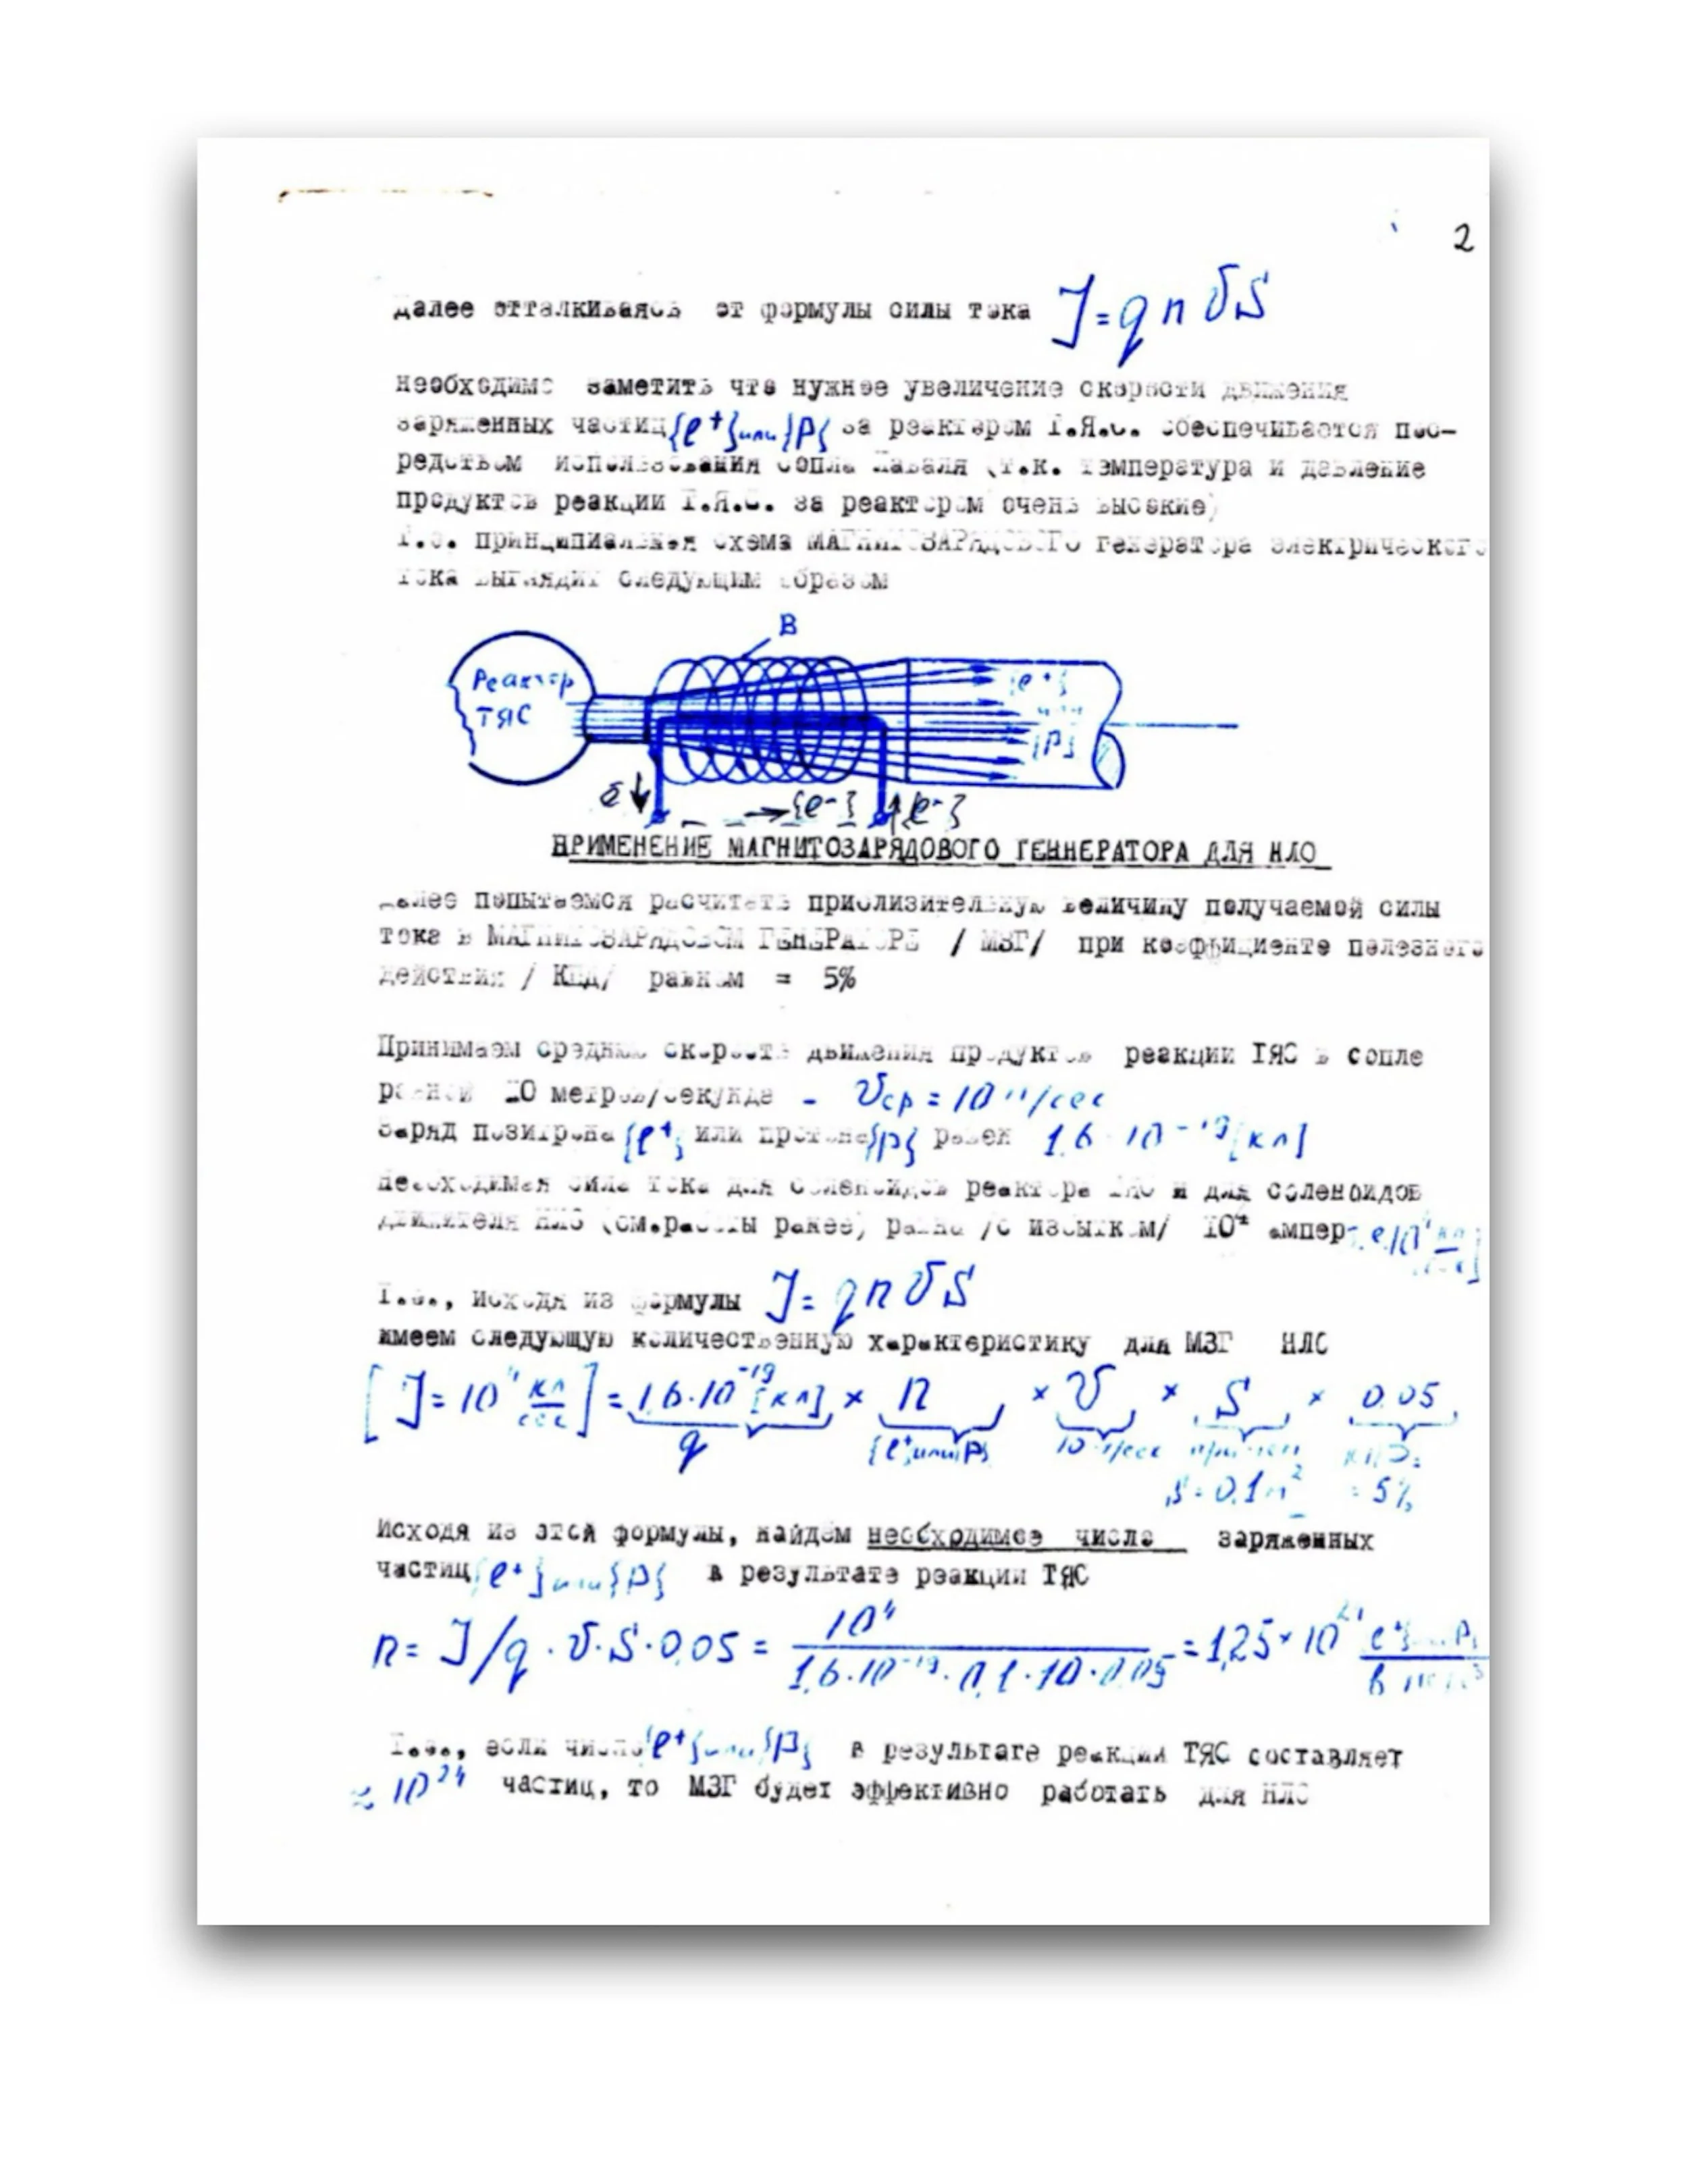 2
Далее отталкиваясь от формулы силы тока J=qnVS
необходимо заметить что нужное увеличение скорости движения
заряженных частиц {e+} или {p} за реактором Т.Я.С. обеспечивается пос-
редством использования сопла Лаваля (т.к. температура и давление
продуктов реакции Т.Я.С. за реактором очень высокие)
Т.о. принципиальная схема МАГНИТОЗАРЯДОВОГО генератора электрического
тока выглядит следующим образом
B
Реактор
ТЯС
{e+}
или
{p}
{e-} {e-}
ПРИМЕНЕНИЕ МАГНИТОЗАРЯДОВОГО ГЕННЕРАТОРА ДЛЯ НЛО
Далее попытаемся расчитать приблизительную величину получаемой силы
тока в МАГНИТОЗАРЯДОВОМ ГЕНЕРАТОРЕ / МЗГ/ при коэффициенте полезного
действия / КПД/ равном = 5%
Принимаем среднюю скорость движения продуктов реакции ТЯС в сопле
равной 10 метров/секунда - Vср = 10 м/сек
Заряд позитрона {e+} или протона {p} равен 1,6·10⁻¹⁹ [кл]
Необходимая сила тока для соленоидов реактора ТЯС и для соленоидов
движителя НЛО (см.работы ранее) равна /с избытком/ 10⁴ ампер т.е. 10⁴ [кл/сек]
Т.о., исходя из формулы J=qnVS
имеем следующую количественную характеристику для МЗГ НЛО
[J=10⁴ кл/сек] = 1,6·10⁻¹⁹ [кл] × n × V × S × 0,05
q {e+ или p} 10 м/сек КПД=
S=0,1м² =5%
Исходя из этой формулы, найдем необходимое число заряженных
частиц {e+} или {p} в результате реакции ТЯС
n= J/q·V·S·0,05 = 10⁴ / 1,6·10⁻¹⁹·0,1·10·0,05 = 1,25×10
Т.о., если число {e+} или {p} в результате реакции ТЯС составляет
≈ 10²⁴ частиц, то МЗГ будет эффективно работать для НЛО